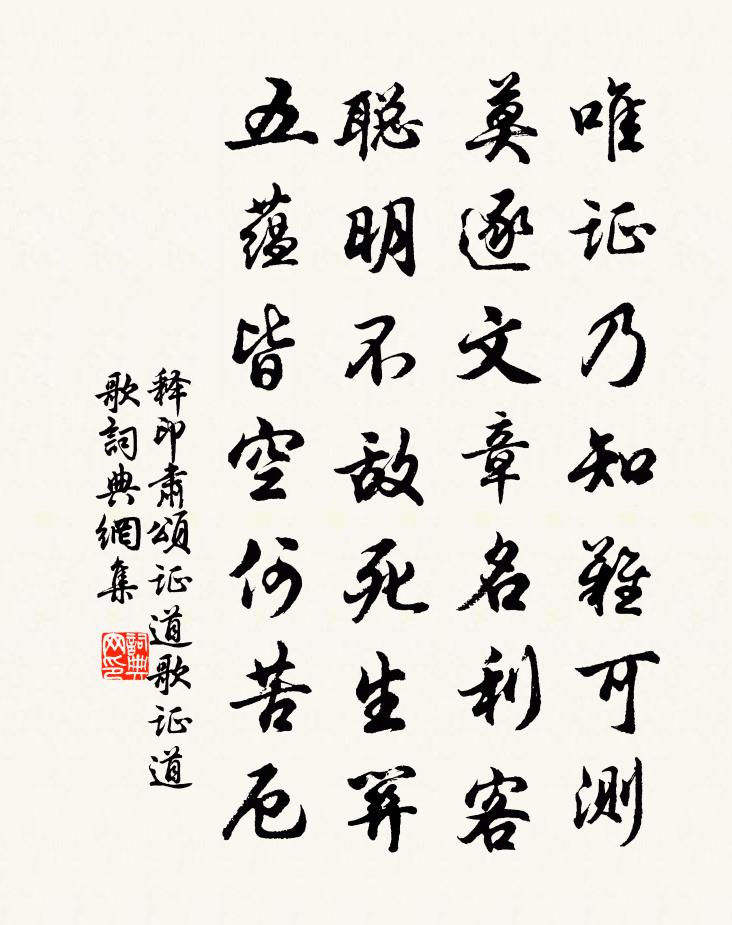 唯证乃知難可測
莫逐文章名利客
聪明不敌死生羿
五蕴皆空何苦厄
释印肃頌证道歌证道
歌詞典網集
詞典
网印